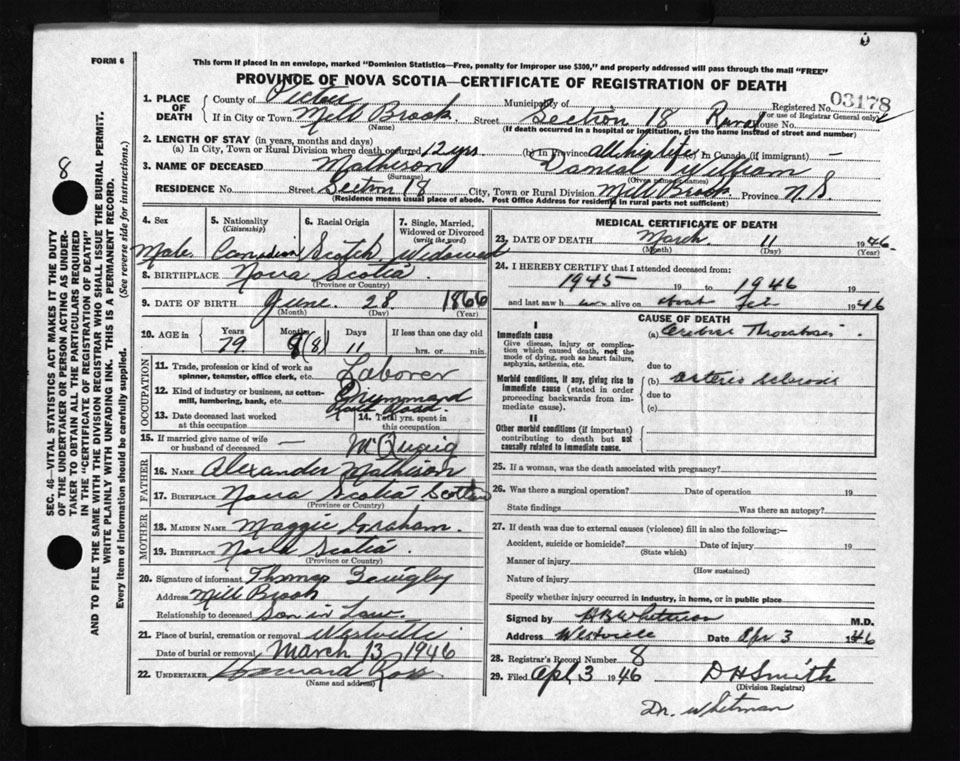 FORM 6
This form if placed in an envelope, marked "Dominion Statistics—Free, penalty for improper use $300," and properly addressed will pass through the mail "FREE"
PROVINCE OF NOVA SCOTIA—CERTIFICATE OF REGISTRATION OF DEATH
1. PLACE OF DEATH { County of Pictou Municipality of Registered No. 03178
(For use of Registrar General only)
If in City or Town Mill Brook Street Section 18 Rural House No.
(Name) (If death occurred in a hospital or institution, give the name instead of street and number)
2. LENGTH OF STAY (in years, months and days)
(a) In City, Town or Rural Division where death occurred 12 yrs (b) In Province All his life (c) In Canada (if immigrant) —
3. NAME OF DECEASED Matheson Daniel William
(Surname) (Given name or names)
RESIDENCE No. Street Section 18 City, Town or Rural Division Mill Brook Province N.S.
(Residence means usual place of abode. Post Office Address for residents in rural parts not sufficient)
4. Sex 5. Nationality (Citizenship) 6. Racial Origin 7. Single, Married, Widowed or Divorced (write the word)
Male. Canadian Scotch Widowed
8. BIRTHPLACE Nova Scotia
(Province or Country)
9. DATE OF BIRTH June 28 1866
(Month) (Day) (Year)
10. AGE in Years Months Days If less than one day old
79 8 (8) 11 hrs. or min.
OCCUPATION
11. Trade, profession or kind of work as spinner, teamster, office clerk, etc. Laborer
12. Kind of industry or business, as cotton-mill, lumbering, bank, etc.
13. Date deceased last worked at this occupation
14. Total yrs. spent in this occupation
15. If married give name of wife or husband of deceased — McQuaig
FATHER
16. NAME Alexander Matheson
17. BIRTHPLACE Nova Scotia
(Province or Country)
MOTHER
18. MAIDEN NAME Maggie Graham
19. BIRTHPLACE Nova Scotia
(Province or Country)
20. Signature of informant Thomas Quigley
Address Mill Brook
Relationship to deceased Son in Law
21. Place of burial, cremation or removal Westville
Date of burial or removal March 13 1946
22. UNDERTAKER Howard Ross
(Name and address)
MEDICAL CERTIFICATE OF DEATH
23. DATE OF DEATH March 11 1946
(Month) (Day)
24. I HEREBY CERTIFY that I attended deceased from:
1945 19 to 1946 19
and last saw h im alive on about Feb 1946
CAUSE OF DEATH
I
Immediate cause
Give disease, injury or complication which caused death, not the mode of dying, such as heart failure, asphyxia, asthenia, etc.
(a) Cerebral Thrombosis
due to
Morbid conditions, if any, giving rise to immediate cause (stated in order proceeding backwards from immediate cause).
(b) Arterio Sclerosis
due to
(c)
II
Other morbid conditions (if important) contributing to death but not causally related to immediate cause.
25. If a woman, was the death associated with pregnancy?
26. Was there a surgical operation? Date of operation 19
State findings Was there an autopsy?
27. If death was due to external causes (violence) fill in also the following:—
Accident, suicide or homicide? Date of injury 19
(State which)
Manner of injury
(How sustained)
Nature of injury
Specify whether injury occurred in industry, in home, or in public place
Signed by M.D.
Address Westville Date Apr 3 1946
28. Registrar's Record Number 8
29. Filed Apl. 3 1946 D H Smith
(Division Registrar)
Dr. Whitman
8
SEC. 46—VITAL STATISTICS ACT MAKES IT THE DUTY
OF THE UNDERTAKER OR PERSON ACTING AS UNDER-
TAKER TO OBTAIN ALL THE PARTICULARS REQUIRED
IN THE "CERTIFICATE OF REGISTRATION OF DEATH"
AND TO FILE THE SAME WITH THE DIVISION REGISTRAR WHO SHALL ISSUE THE BURIAL PERMIT.
WRITE PLAINLY WITH UNFADING INK. THIS IS A PERMANENT RECORD.
Every item of information should be carefully supplied. (See reverse side for instructions.)